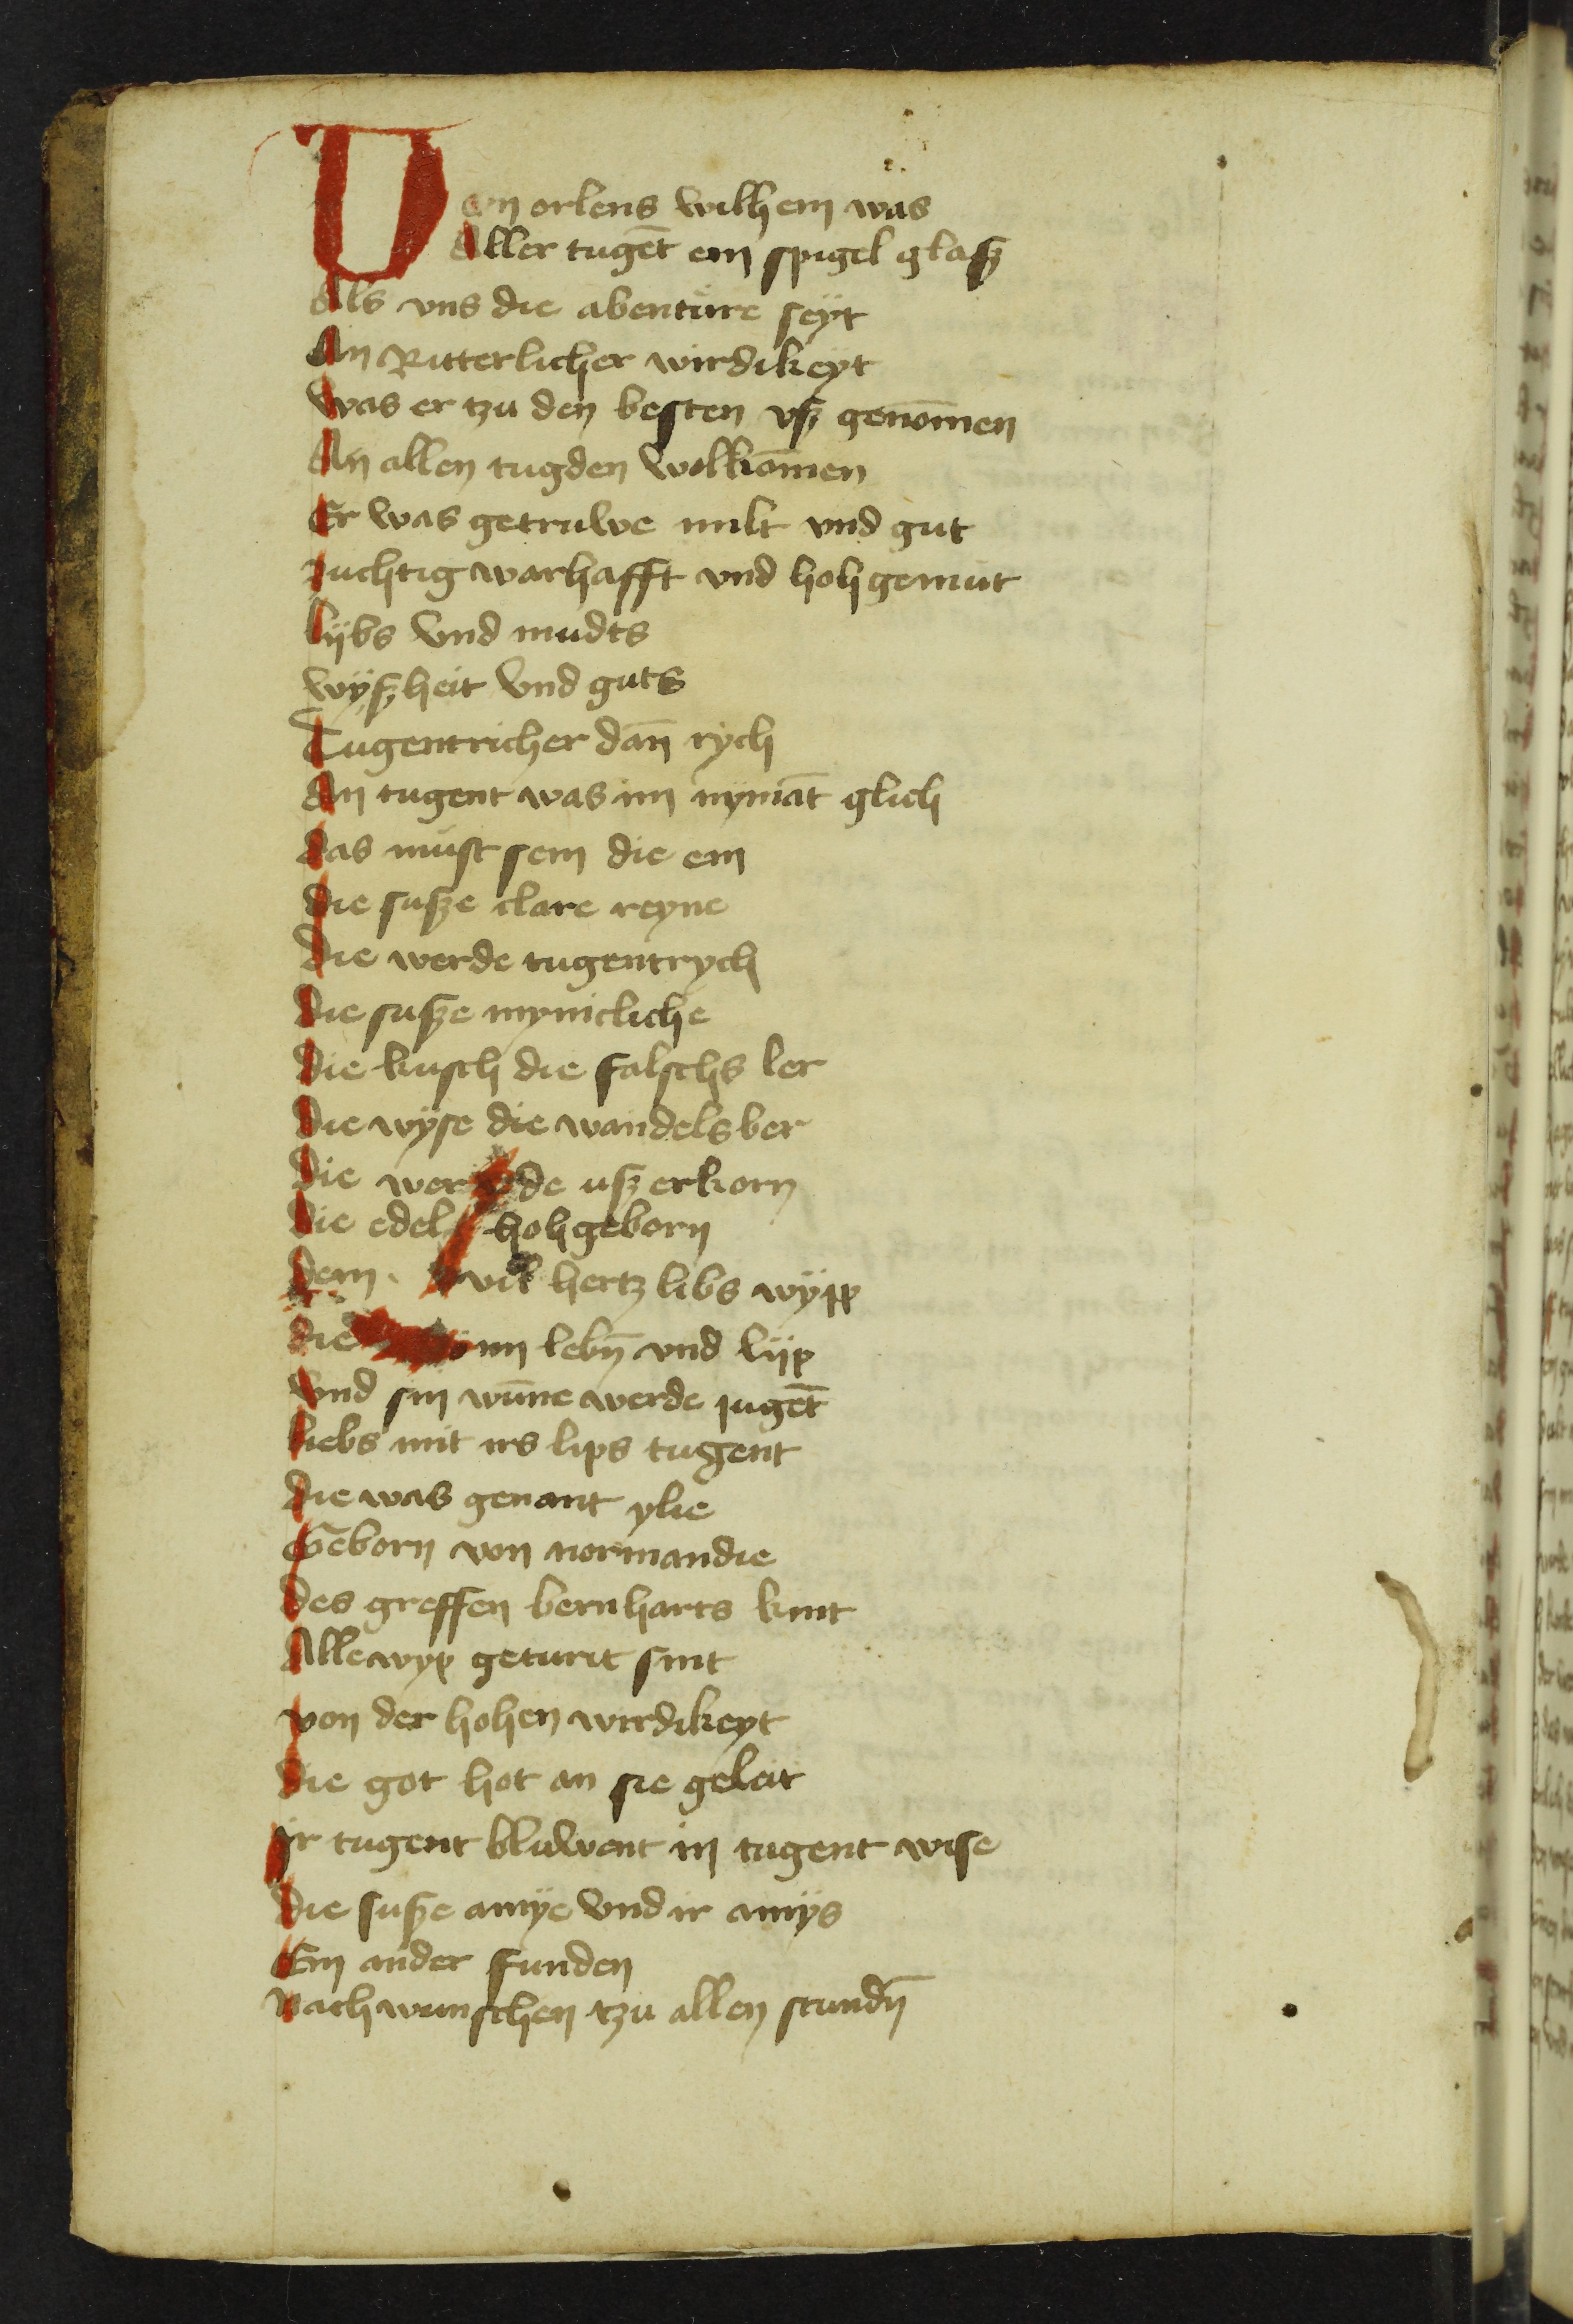 Von orlens wilhem was
Aller tugēt ein spigel glasz
Als vns die abentüre seyt
An Ritterlicher wirdikeyt
Was er tzu den besten vsz genōmen
An allen tugden wolkōmen
Er was getruwe milt vnd gut
zuchtig warhafft vnd hoh gemüt
lijbs vnd mudts
wÿszheit vnd guts
Tugentricher dan̄ rÿch
An tugent was im nymāt glich
das müst sein die ein
die susze clare reyne
die werde tugentrych
die susze mynicliche
die kusch die falschs ler
die wÿse die wandels ber
die werde usz erkorn
die edel hohgeborn
dem vil hertz libs wÿpp
die im lebn̄ vnd lijp
Vnd sin wūne werde jugēt
liebs mit irs lips tugent
die was genant ylie
Geborn von normandie
des greffen bernharts kint
Alle wyp geturit sint
von der hohen wirdikeyt
die got hot an sie geleit
Ir tugent bluwent in tugent wise
die susze amÿe vnd ir amÿs
Ein ander funden
Nach wunschen tzu allen stundn̄